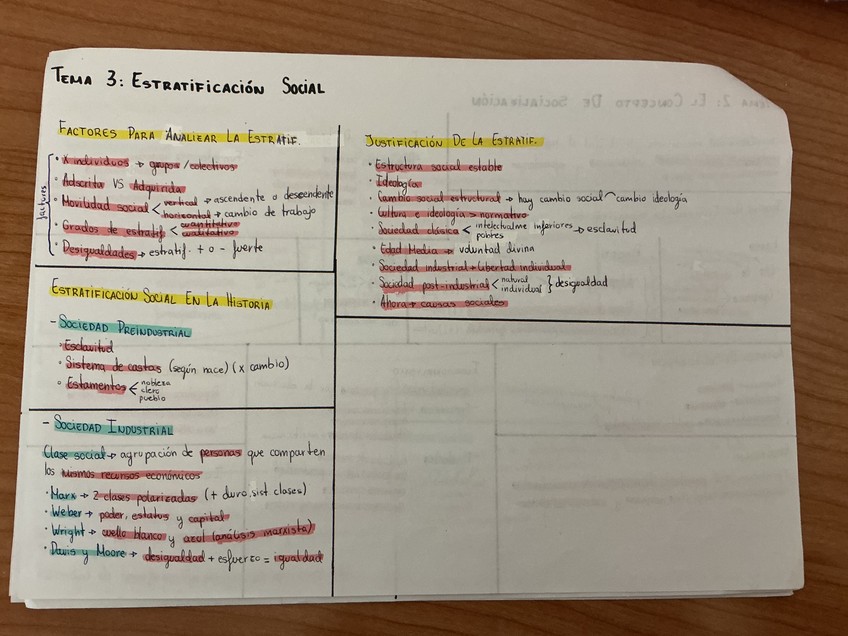 TEMA 3: ESTRATIFICACIÓN SOCIAL
FACTORES PARA ANALIZAR LA ESTRATIF.
factores
· X individuos → grupos/colectivos
· Adscrita VS Adquirida
· Movilidad social < vertical → ascendente o descendente
horizontal → cambio de trabajo
· Grados de estratif < cuantitativo
cualitativo
· Desigualdades → estratif. + o - fuerte
ESTRATIFICACIÓN SOCIAL EN LA HISTORIA
- SOCIEDAD PREINDUSTRIAL
· Esclavitud
· Sistema de castas (según nace) (x cambio)
· Estamentos < nobleza
clero
pueblo
- SOCIEDAD INDUSTRIAL
Clase social → agrupación de personas que comparten
los mismos recursos económicos
· Marx → 2 clases polarizadas (+ duro.sist clases)
· Weber → poder, estatus y capital
· Wright → cuello blanco y azul (análisis marxista)
· Davis y Moore → desigualdad + esfuerzo = igualdad
JUSTIFICACIÓN DE LA ESTRATIF.
· Estructura social estable
· Ideología
· Cambio social estructural → hay cambio social ⌒ cambio ideología
· Cultura e ideología > normativo
· Sociedad clásica < intelectualme inferiores → esclavitud
pobres
· Edad Media → voluntad divina
· Sociedad industrial → libertad individual
· Sociedad post-industrial < natural } desigualdad
individual
· Ahora → causas sociales